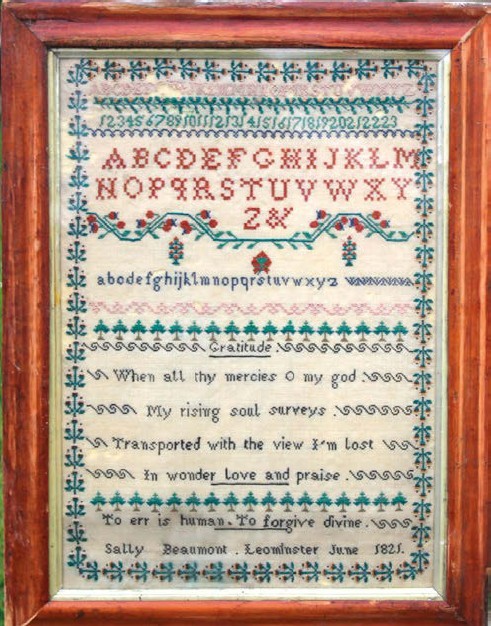 12345678910111213141516171819202122 23
ABCDEFGHIJKLM
NOPQRSTUVWXY
Z&
abcdefghijklmnopqrstuvwxyz
Gratitude
When all thy mercies O my god
My rising soul surveys
Transported with the view I'm lost
In wonder love and praise
To err is human. To forgive divine.
Sally Beaumont. Leominster June 1821.